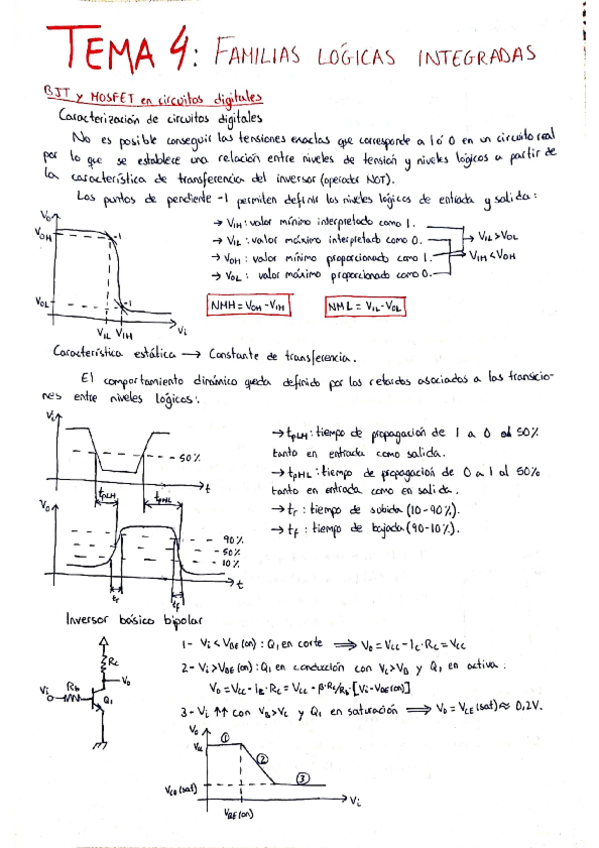 TEMA 4: FAMILIAS LÓGICAS INTEGRADAS
BJT y MOSFET en circuitos digitales
Caracterización de circuitos digitales
No es posible conseguir las tensiones exactas que corresponde a 1 ó 0 en un circuito real
por lo que se establece una relación entre niveles de tensión y niveles lógicos a partir de
la característica de transferencia del inversor (operador NOT).
Los puntos de pendiente -1 permiten definir los niveles lógicos de entrada y salida:
Vo
VOH
-1
-1
VOL
VIL VIH
Vi
→ VIH: valor mínimo interpretado como 1.
→ VIL: valor máximo interpretado como 0.
→ VOH: valor mínimo proporcionado como 1.
→ VOL: valor máximo proporcionado como 0.
→ VIL>VOL
VIH<VOH
NMH = VOH-VIH
NML = VIL-VOL
Característica estática → Constante de transferencia.
El comportamiento dinámico queda definido por los retardos asociados a las transicio-
nes entre niveles lógicos:
Vi
50%
t
tPLH
tPHL
Vo
90%
50%
10%
t
tr
tf
→ tPLH: tiempo de propagación de 1 a 0 al 50%
tanto en entrada como salida.
→ tPHL: tiempo de propagación de 0 a 1 al 50%
tanto en entrada como en salida.
→ tr: tiempo de subida (10-90%).
→ tf: tiempo de bajada (90-10%).
Inversor básico bipolar
Rc
Vo
Vi
Rb
Q1
1- Vi < VBE(on): Q1 en corte ⟹ Vo = Vcc - Ic·Rc = Vcc
2- Vi > VBE(on): Q1 en conducción con Vc>VB y Q1 en activa:
Vo = Vcc - IB·Rc = Vcc - β·Rc/Rb·[Vi-VBE(on)]
3- Vi ↑↑ con VB>Vc y Q1 en saturación ⟹ Vo = VCE(sat) ≈ 0,2V.
Vo
Vcc
①
②
③
VCE(sat)
VBE(on)
Vi